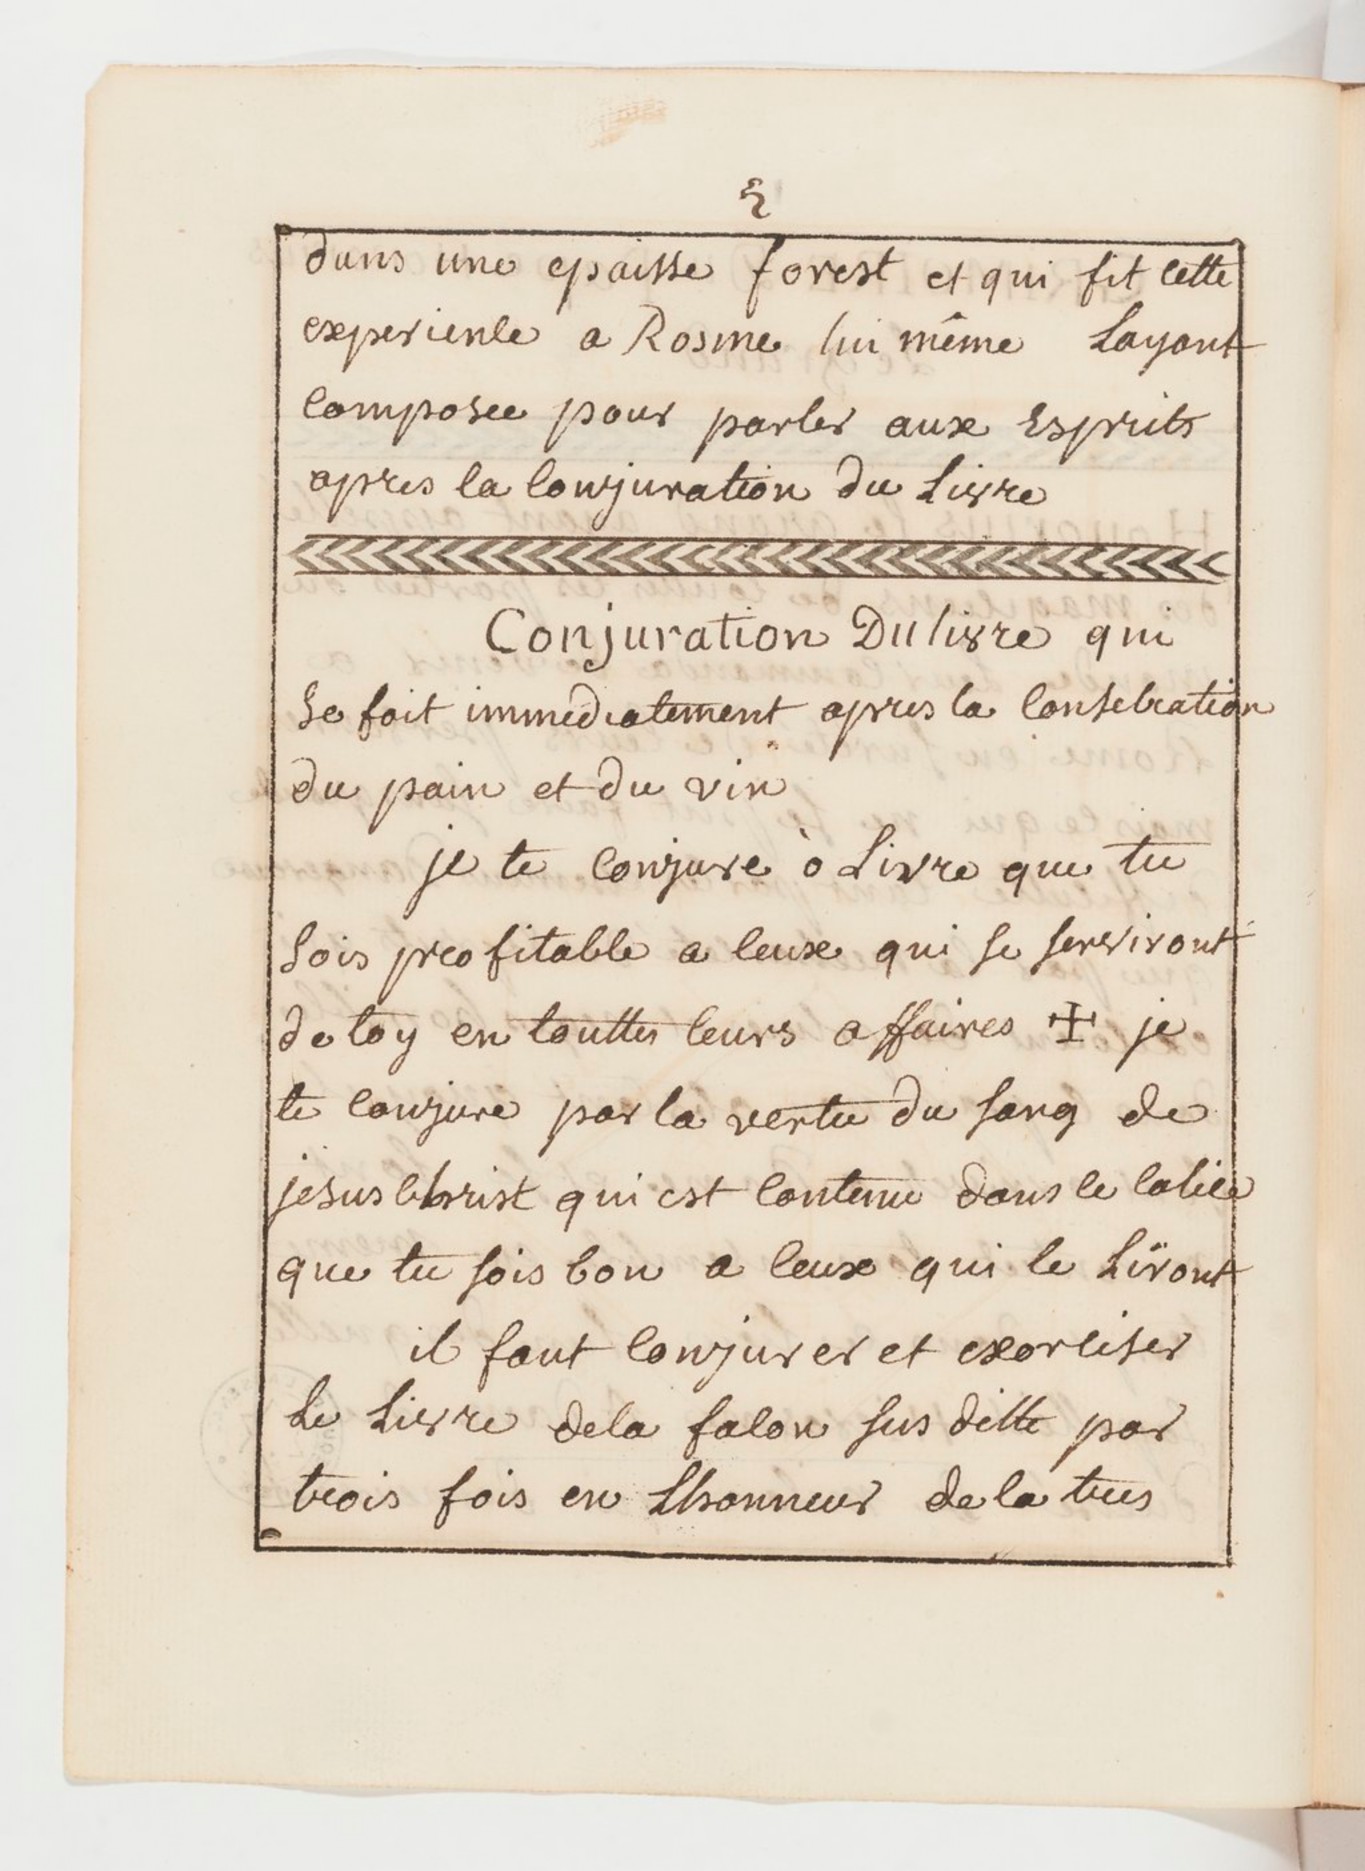 2
dans une epaisse forest et qui fit cette
experience a Rosme lui même Layant
composee pour parler aux Esprits
apres la conjuration du Livre
Conjuration Du livre qui
Se fait immediatement apres la consecration
du pain et du vin
je te conjure ò Livre que tu
Sois profitable a ceux qui se serviront
de toy en touttes leurs affaires ✠ je
te conjure par la vertu du sang de
jesus christ qui est contenu dans le calice
que tu sois bon a ceux qui le Liront
il faut conjurer et exorciser
Le Livre de la facon sus ditte par
trois fois en Lhonneur de la tres